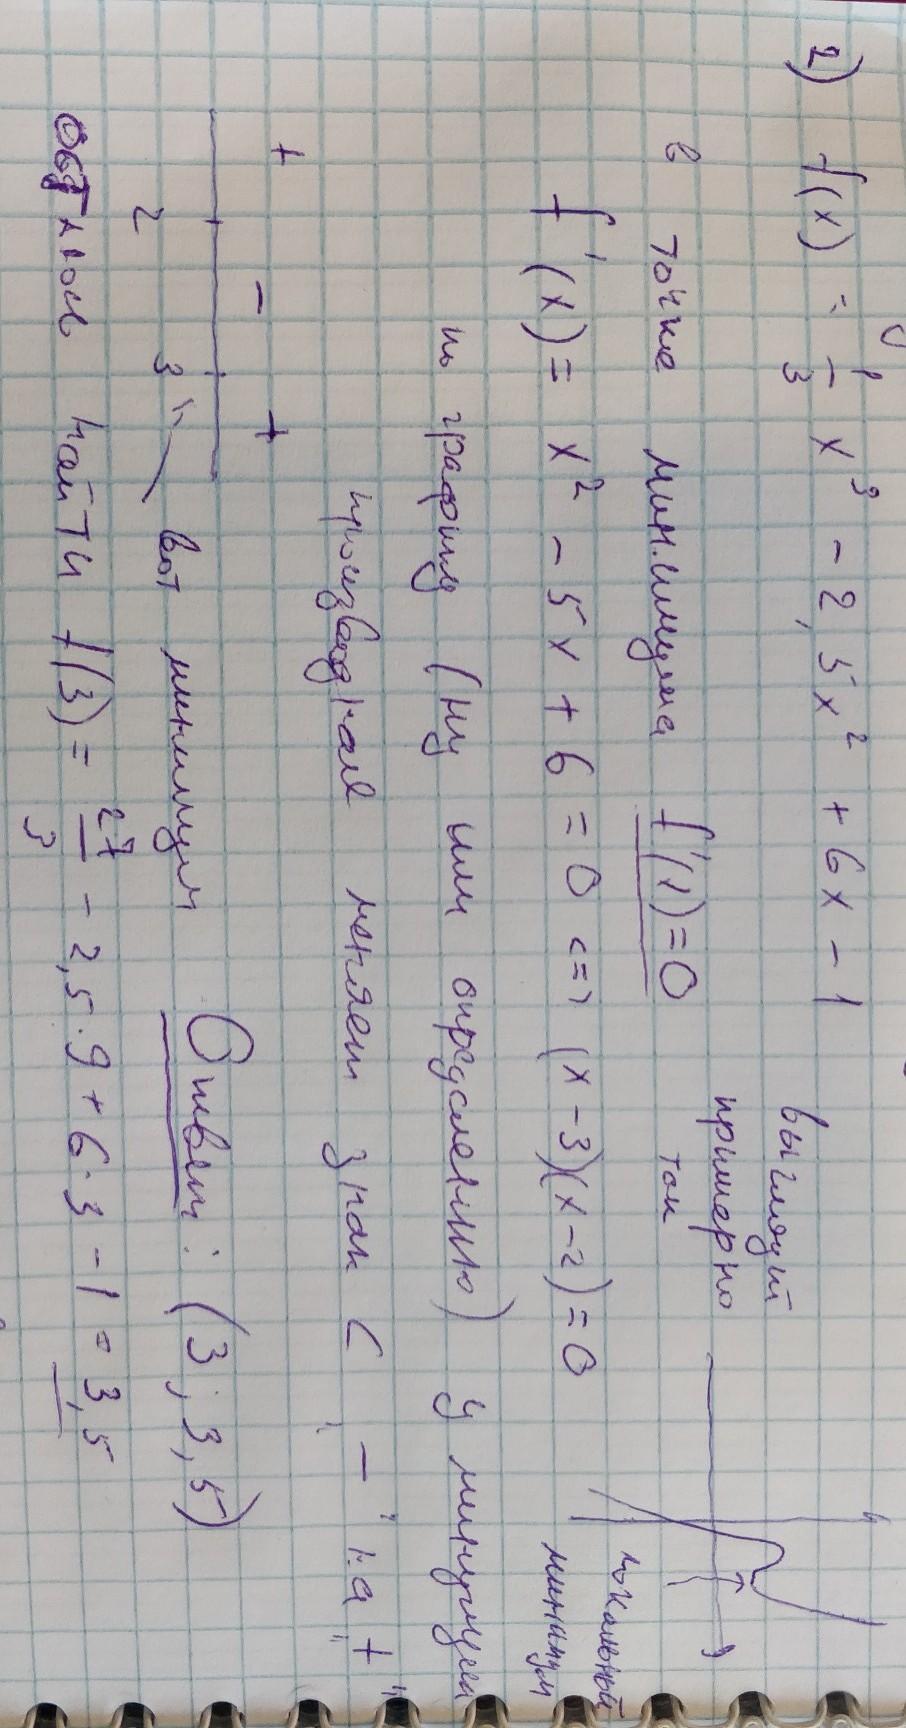 2) f(x) = 1/3 x³ - 2,5x² + 6x - 1
выглядит
примерно
так
локальный
минимум
в точке минимума f'(x)=0
f'(x) = x² - 5x + 6 = 0 <=> (x-3)(x-2) = 0
по графику (ну или определению) у минимума
производная меняет знак с "-" на "+"
+ - +
2 3
вот минимум
Ответ: (3; 3,5)
осталось найти f(3) = 27/3 - 2,5·9 + 6·3 - 1 = 3,5